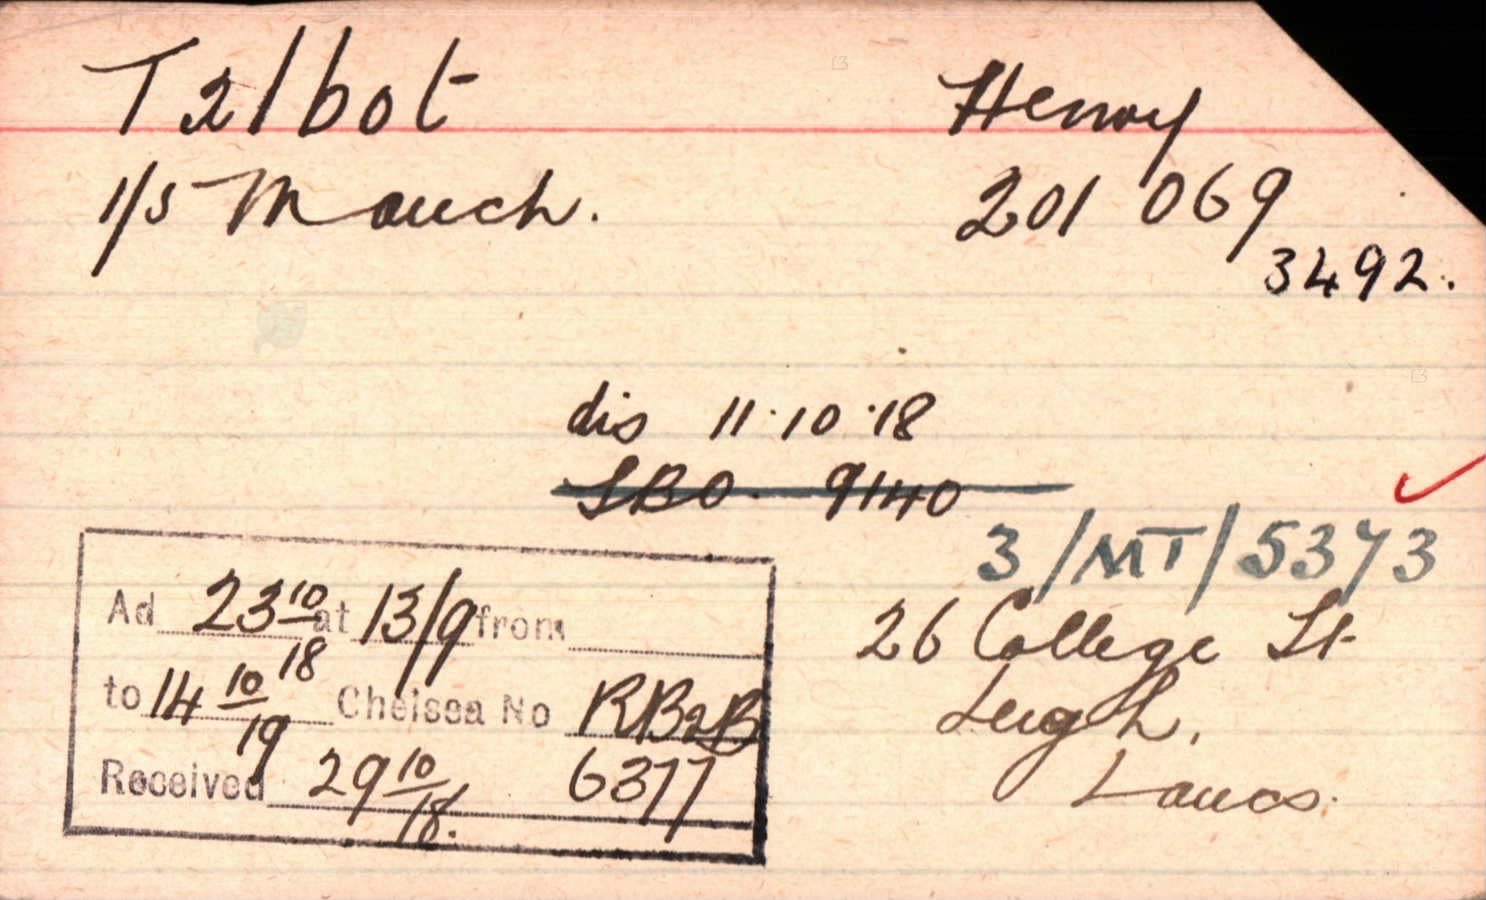 Talbot Henry
1/5 Manch. 201 069
3492.
dis 11.10.18
SBO. 9140
3/MT/5373
Ad 23 10/18 at 13/9 from
to 14 10/19 Chelsea No RB2B
Received 29 10/18. 6377
26 College St
Leigh,
Lancs.